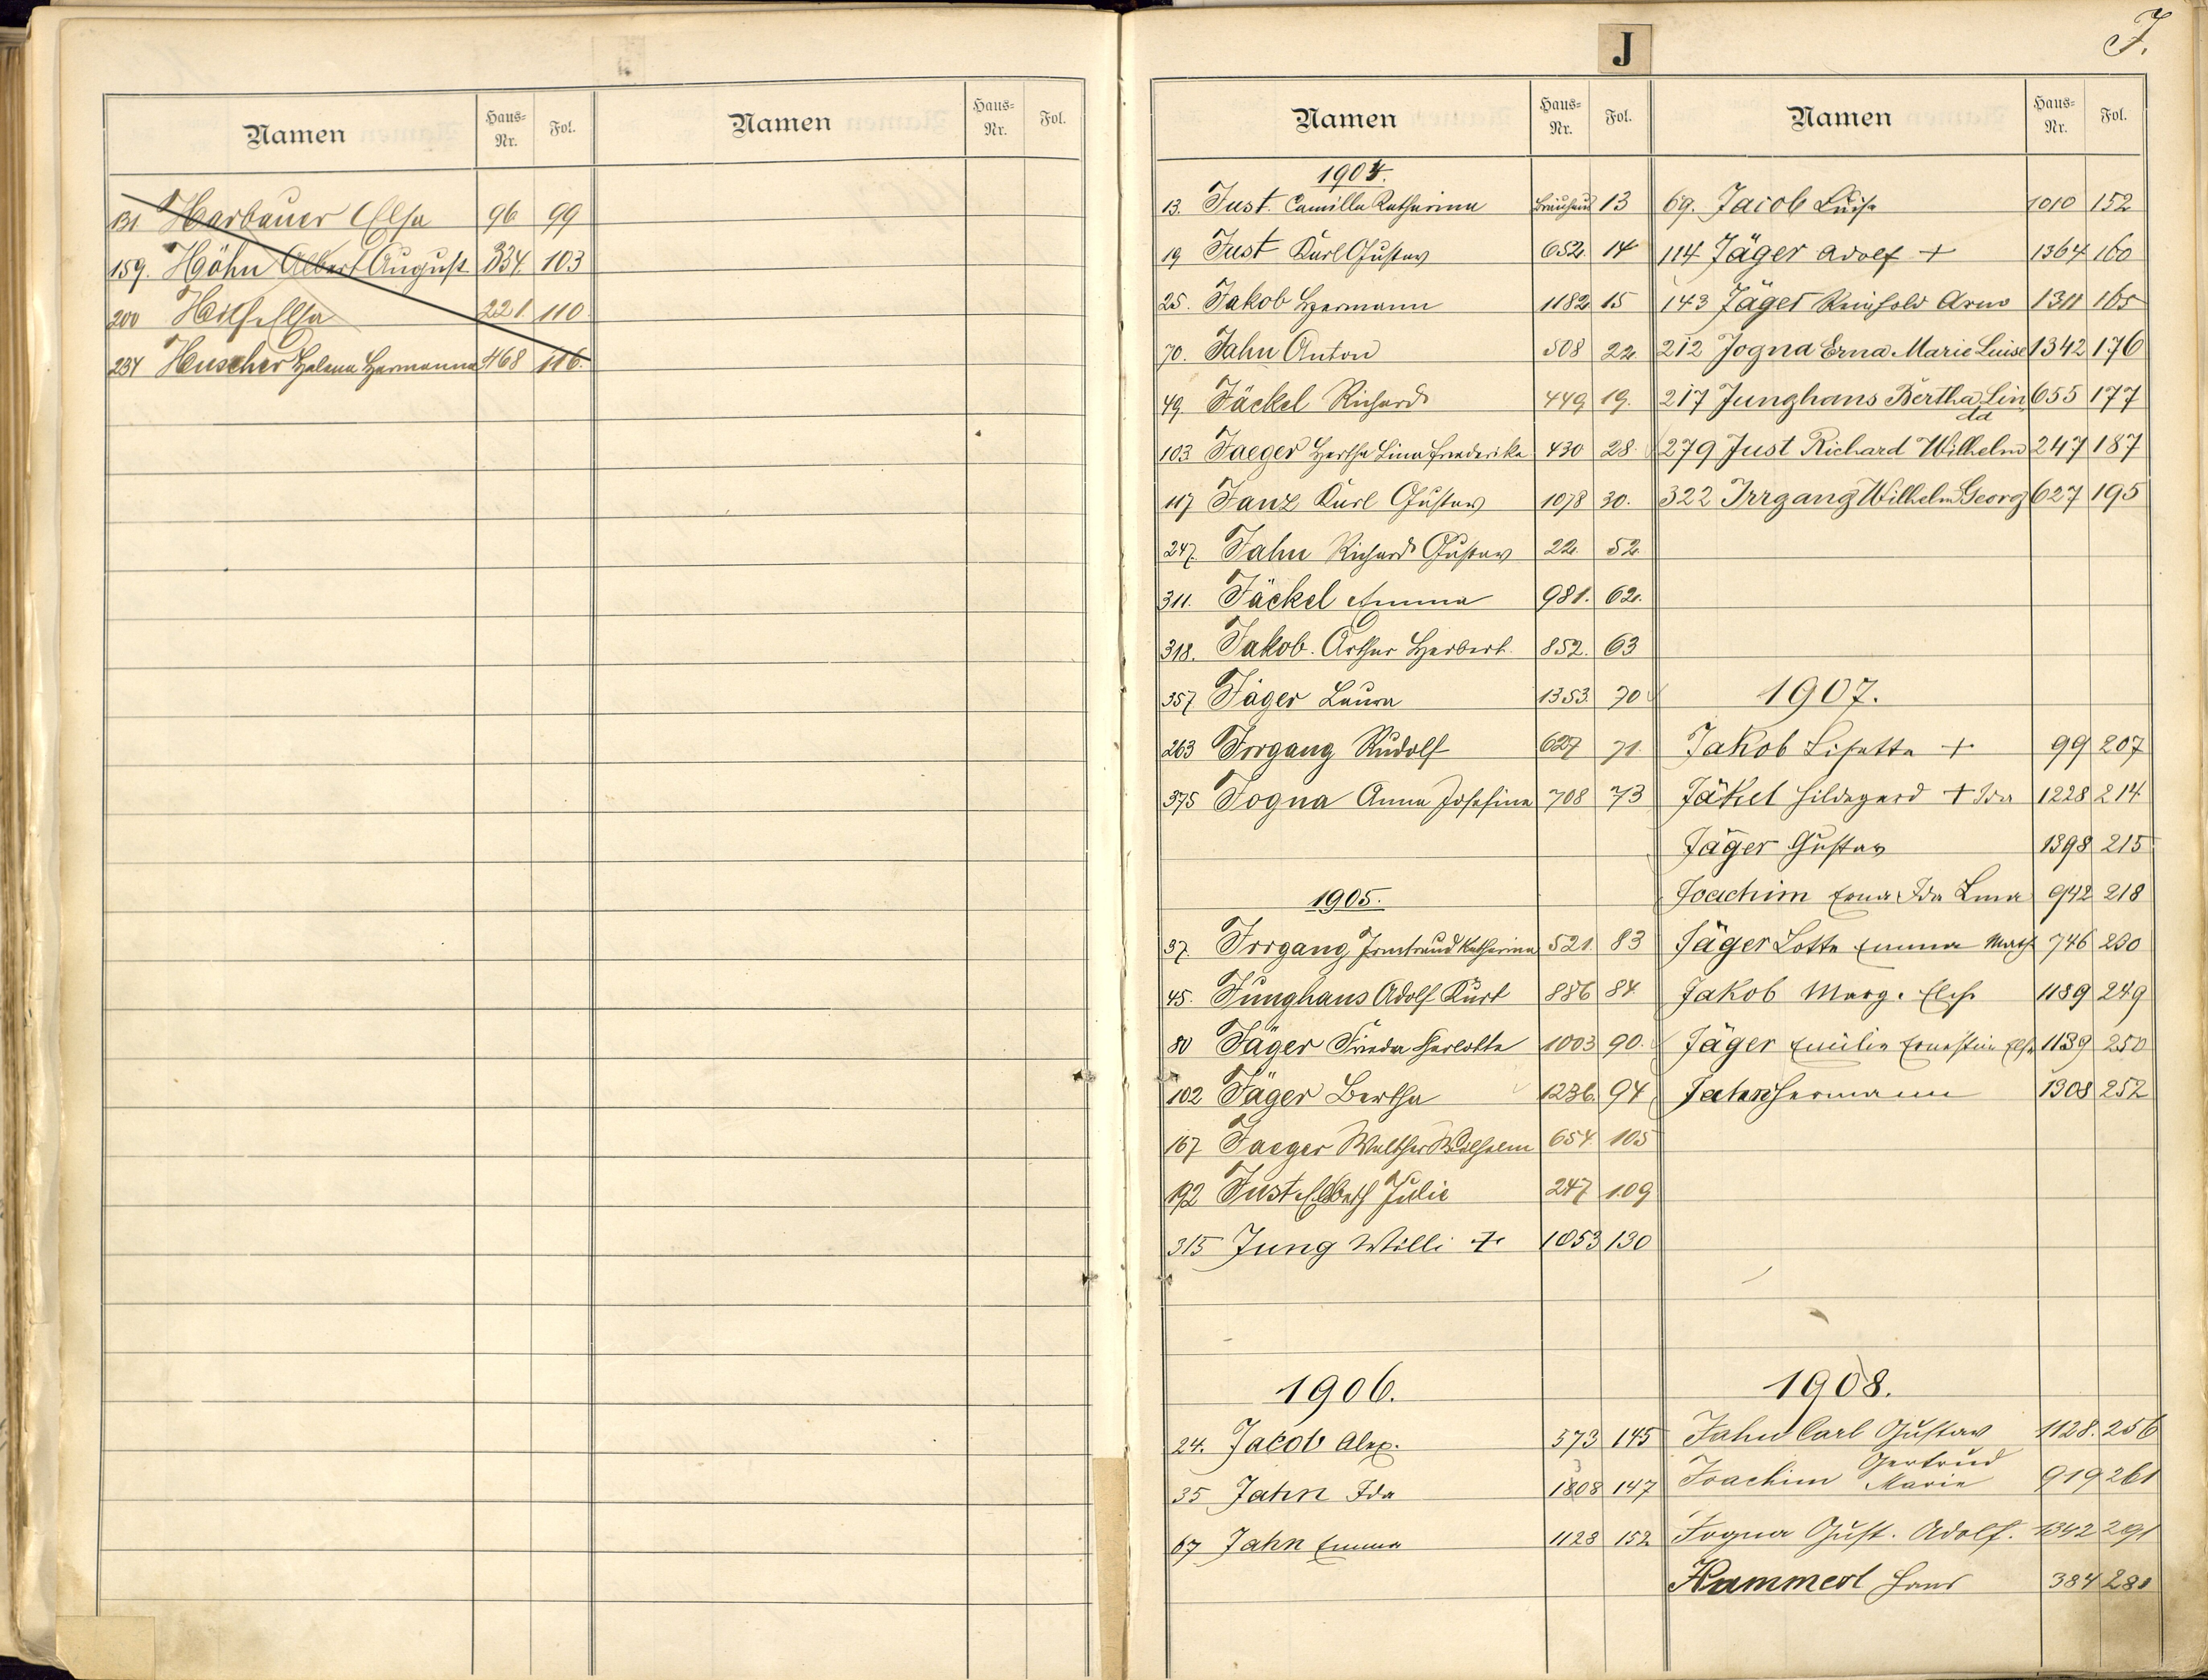 Namen Haus-Nr. Fol. Namen Haus-Nr. Fol.
131 Harbauer Elsa 96 99
159. Höhn Albert August 834 103
200 Elsa 221 110
234 Heuscher Helena Hermanna 468 116.
J
J.
Namen Haus-Nr. Fol.
1904.
13. Just. Camilla Katharina Bräuhaus 13
19 Just Karl Gustav 652. 14
25. Jakob Hermann 1182 15
70. Jahn Anton 508 22
49 Jäckel Richard 449 19.
103 Jaeger Hertha Lina Friederika 430 28.
117 Janz Karl Gustav 1078 30.
247. Jahn Richard Gustav 22. 52.
311. Jäckel Emma 981. 62.
318. Jakob. Arthur Herbert 852. 63
357 Jäger Laura 1353. 70
263 Irrgang Rudolf 627 71.
375 Jogna Anna Josefina 708 73
1905.
37. Irrgang Irmtraud Katharina 521. 83
45. Junghans Adolf Kurt 886 84.
80 Jäger Frieda Charlotte 1003 90.
102 Jäger Bertha 1236. 94
167 Jaeger Walther Wilhelm 654. 105
192 Just Elsbeth Julie 247 109
315 Jung Willi + 1053 130
1906.
24. Jacob Alex. 573 145
35 Jahn Ida 1308 147
67 Jahn Emma 1128 152
Namen Haus-Nr. Fol.
69. Jacob Luise 1010 152
114 Jäger Adolf + 1364 160
143 Jäger Reinhold Arno 1311 165
212 Jogna Erna Marie Luise 1342 176
217 Junghans Bertha Lin 655 177
da
279 Just Richard Wilhelm 247 187
322 Irrgang Wilhelm Georg 627 195
1907.
Jakob Lisette + 99 207
Jäkel Hildegard + Ida 1228 214
Jäger Gustav 1398 215
Joachim Erna Ida Lina 942 218
Jäger Lotte Emma Math 746 230
Jakob Marg. Elise 1189 249
Jäger Emilie Ernestine Elsa 1139 250
Jahn Hermann 1308 252
1908.
Jahn Carl Gustav 1128. 256
Gertrud
Joachim Marie 919 261
Jogna Gust. Adolf. 1342 291
Kammerl Hans 384 281